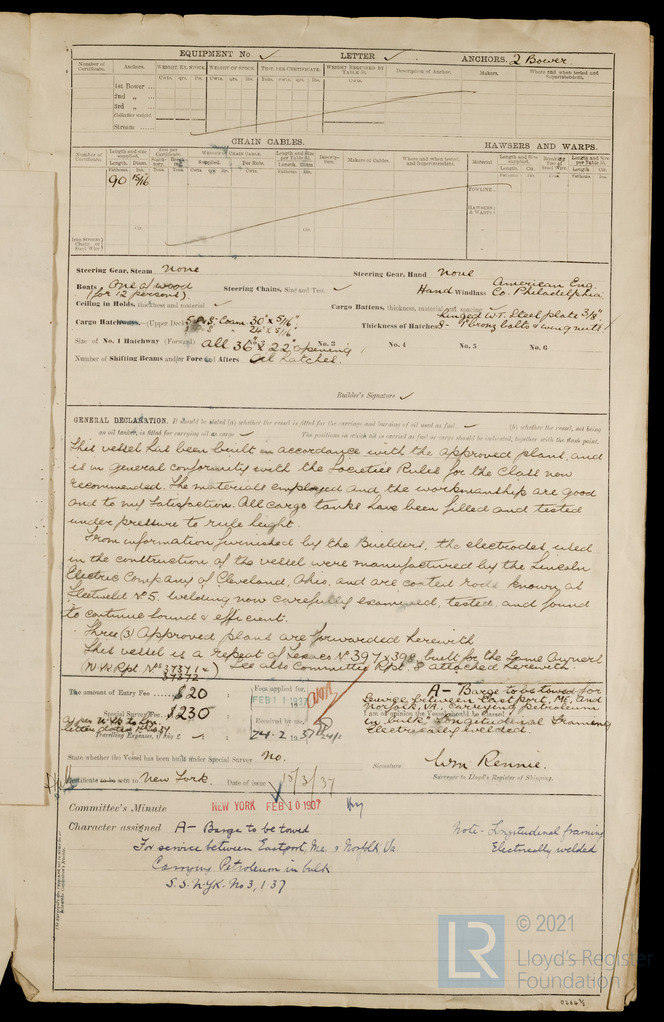 EQUIPMENT No ✓ LETTER ✓ ANCHORS. 2 Bower
Number of Certificate. Anchors. WEIGHT EX. STOCK. WEIGHT OF STOCK. TEST, PER CERTIFICATE. WEIGHT REQUIRED BY TABLE 53. Description of Anchor. Makers. Where and when tested and Superintendent.
Cwts. qrs. lbs. Cwts. qrs. lbs. Tons. cwts. qrs. lbs. Cwts.
1st Bower
2nd „
3rd „
Collective weight.
Stream
CHAIN CABLES. HAWSERS AND WARPS.
Number of Certificate. Length and size supplied. Test per Certificate. WEIGHT OF CHAIN CABLE. Length and Size per Table 53. Description. Makers of Cables. Where and when tested, and Superintendent. Material Length and Size supplied. Breaking Test of Steel Wire. Length and Size per Table 53.
Length. Diam. Supplied. Per Rule. Length. Diam. Length. Cir. Length. Cir.
Fathoms Tons. Tons. Cwts. qrs. lbs. Cwts. Fathoms. Ins. Fathoms Ins. Tons. Fathoms Ins.
90 15/16 TOWLINE
HAWSERS & WARPS
Cir. Cir.
Iron Stream Chain or Steel Wire
Steering Gear, Steam none Steering Gear, Hand none
Boats One of wood (for 12 persons). Steering Chains, Size and Test ✓ Hand Windlass American Eng. Co. Philadelphia
Ceiling in Holds, thickness and material ✓ Cargo Battens, thickness, material and spacing
Cargo Hatchways. (Upper Deck) 30" x 5/16" Thickness of Hatches hinged W.T. Steel plate 3/8"
24" x 5/16" 8- 1" brong bolts & wing nuts
Size of No. 1 Hatchway (Forward) all 36" x 22" opening No. 3 No. 4 No. 5 No. 6
Number of Shifting Beams and/or Fore and Afters Oil hatches.
Builder's Signature ✓
GENERAL DECLARATION. It should be stated (a) whether the vessel is fitted for the carriage and burning of oil used as fuel ✓ (b) whether the vessel, not being
an oil tanker, is fitted for carrying oil as cargo ✓ The positions in which oil is carried as fuel or cargo should be indicated, together with the flash point.
This vessel has been built in accordance with the approved plans, and
is in general conformity with the Societies Rules for the Class now
recommended. The materials employed and the workmanship are good
and to my satisfaction. All cargo tanks have been filled and tested
under pressure to rule height.
From information furnished by the Builders, the electrodes used
in the construction of the vessel were manufactured by the Lincoln
Electric Company of Cleveland, Ohio, and are coated rods known as
Fleetweld No 5. Welding now carefully examined, tested, and found
to continue sound & efficient.
Three (3) Approved plans are forwarded herewith
This vessel is a repeat of Texaco No 397 & 398 built for the Same Owners
(N.YK Rpt. Nos 37371 & 37372) See also Committee Rpt. 8 attached herewith.
The amount of Entry Fee $20 : Fees applied for, FEB 11 1937
Special Survey Fee $230 : Received by me,
Travelling Expenses, if any £ 24.2.1937
A- Barge to be towed for
Surv. between Eastport, ME, and
Norfolk, VA. Carrying petroleum
I am of opinion the Vessel should be Classed
in bulk. Longitudinal Framing
Electrically welded.
State whether the Vessel has been built under Special Survey No.
Signature Wm Rennie.
Surveyor to Lloyd's Register of Shipping.
Certificate to be sent to New York. Date of issue 10/3/37
Committee's Minute NEW YORK FEB 10 1937
Character assigned A- Barge to be towed
For service between Eastport, Me. & Norfolk Va
Carrying Petroleum in bulk
S.S. N.YK. No 3, 1.37
Note- Longitudinal framing
Electrically welded
© 2021
LR Lloyd's Register
Foundation